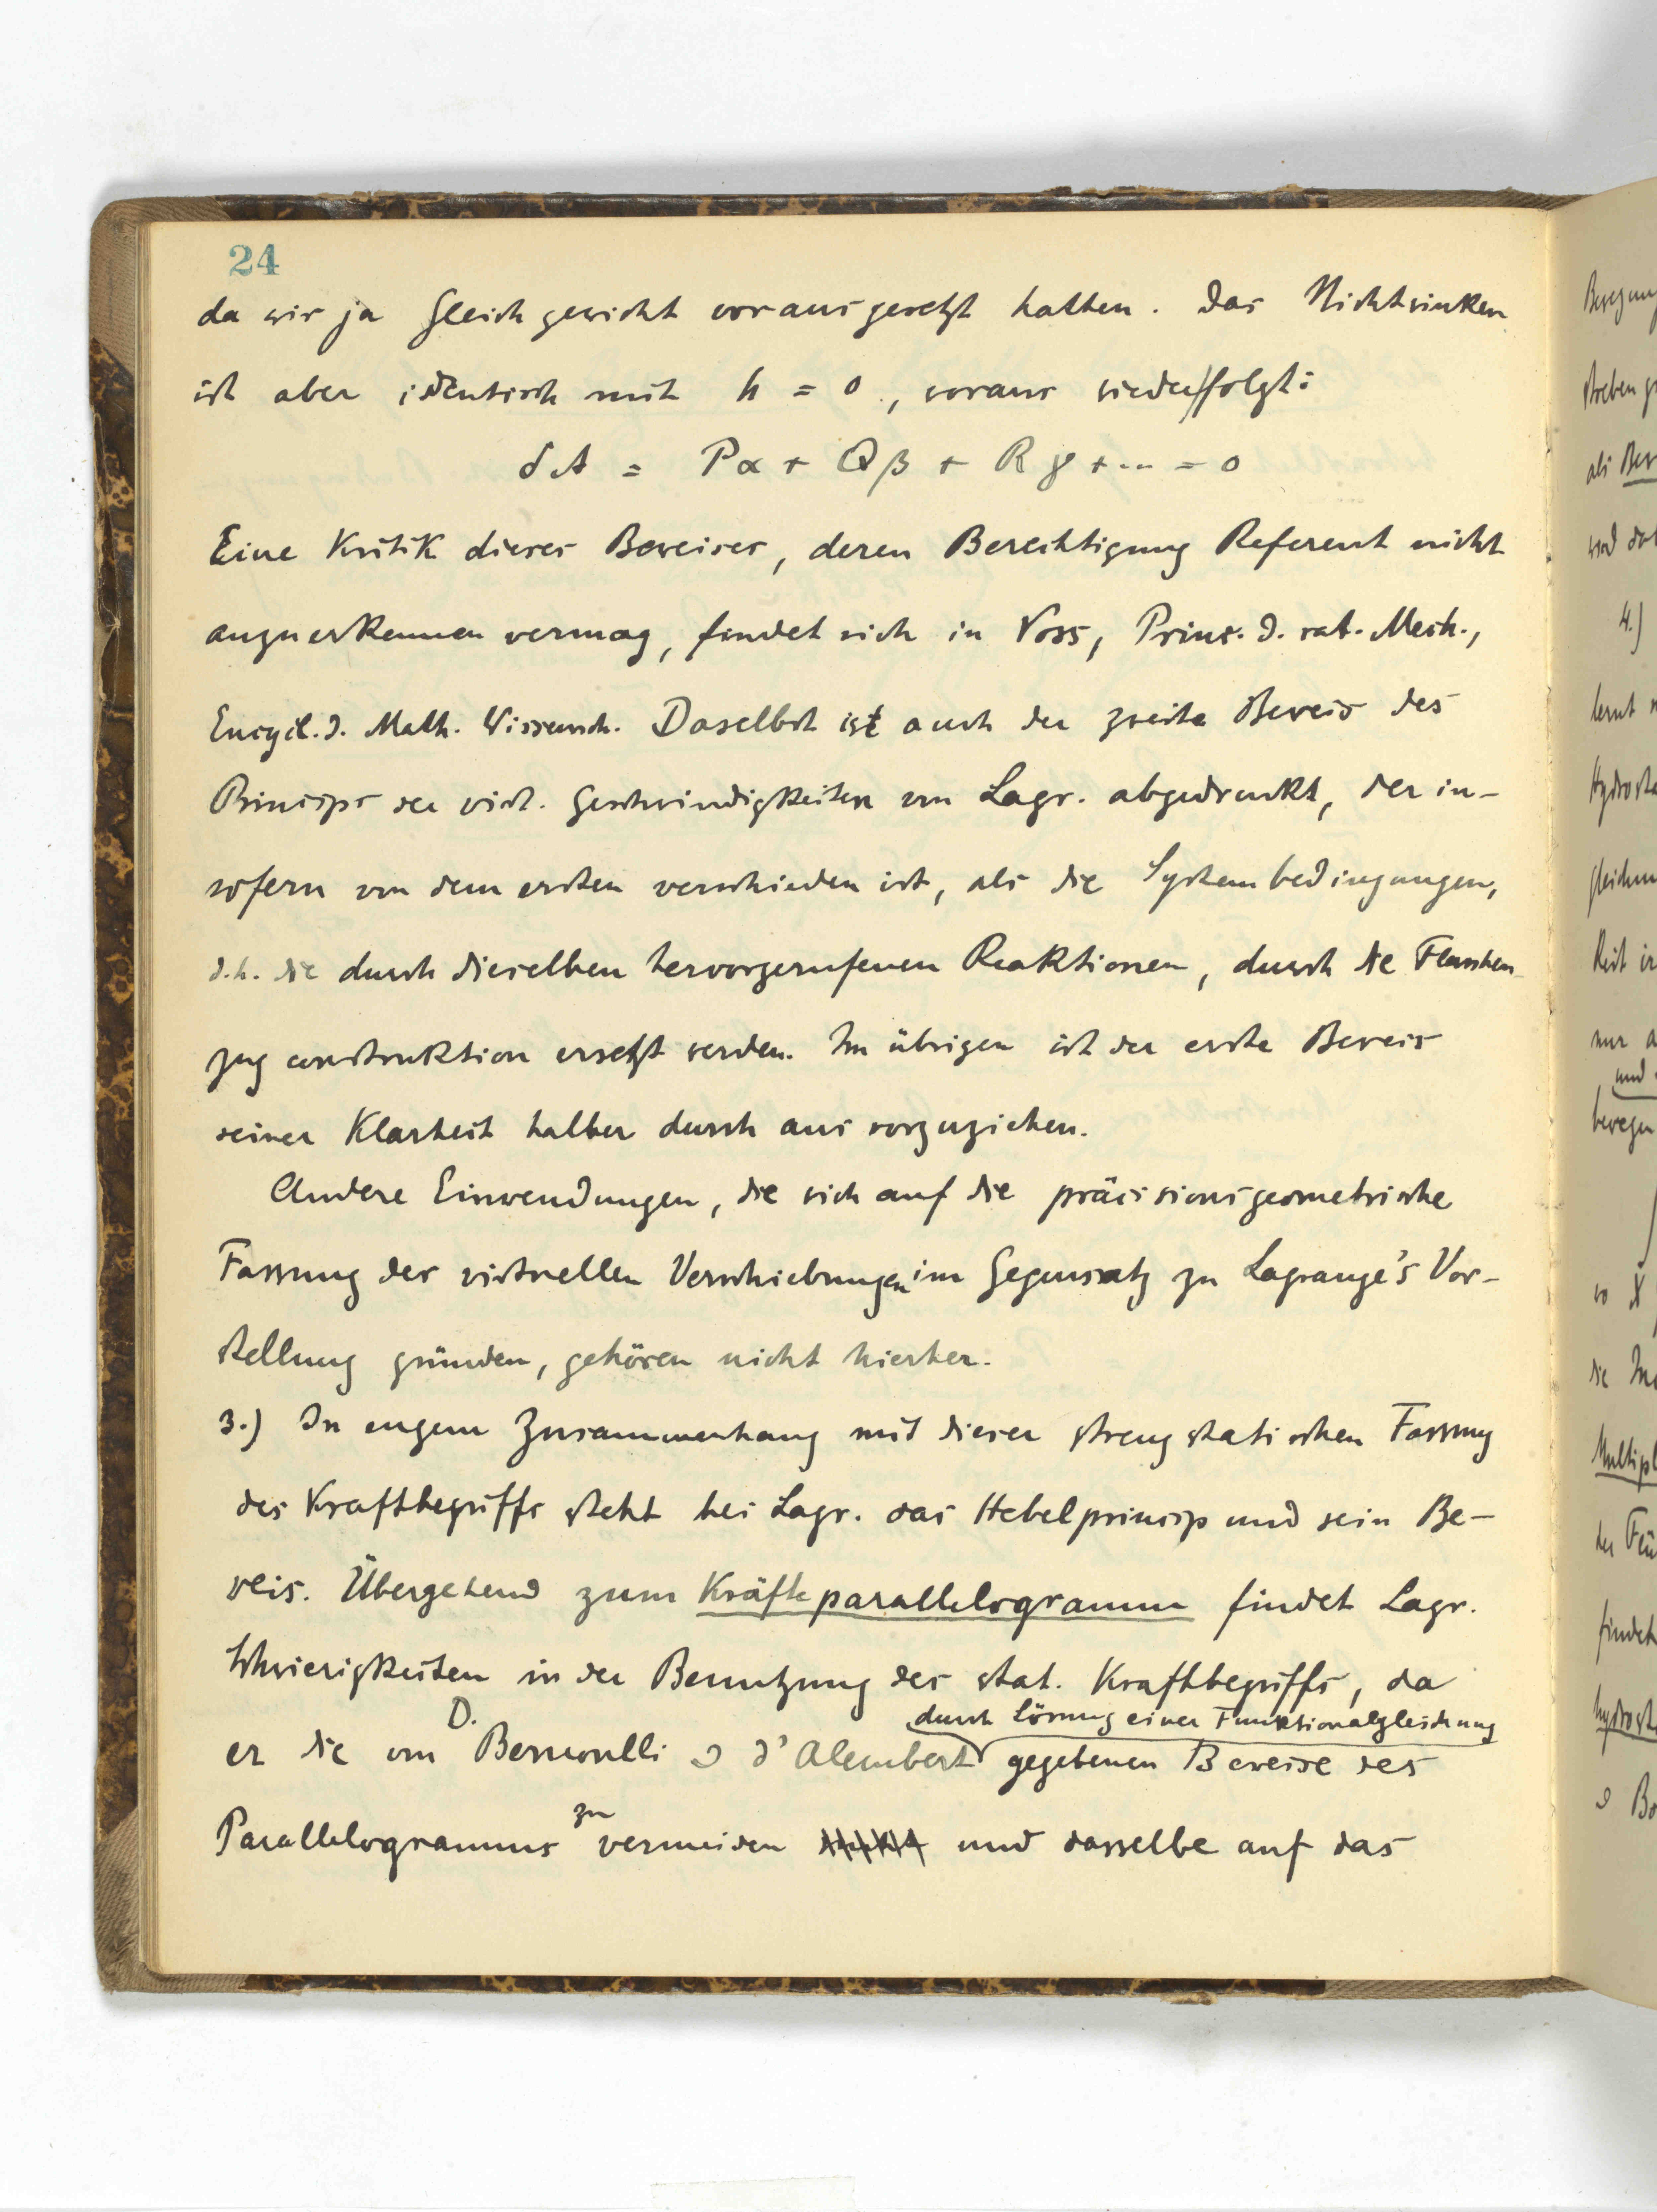 24
da wir ja Gleichgewicht vorausgesetzt hatten. Das Nichtsinken
ist aber identisch mit h = 0, woraus wieder folgt:
δA = Pα + Qβ + Rγ + ... = 0
Eine Kritik dieses Beweises, deren Berechtigung Referent nicht
anzuerkennen vermag, findet sich in Voss, Prinz. d. rat. Mech.,
Encycl. d. Math. Wissensch. Daselbst ist auch der zweite Beweis des
Prinzips der virt. Geschwindigkeiten von Lagr. abgedruckt, der in-
sofern von dem ersten verschieden ist, als die Systembedingungen,
d.h. die durch dieselben hervorgerufenen Reaktionen, durch die Flaschen-
zugconstruktion ersetzt werden. Im übrigen ist der erste Beweis
seiner Klarheit halber durchaus vorzuziehen.
Andere Einwendungen, die sich auf die präcisionsgeometrische
Fassung der virtuellen Verschiebungen im Gegensatz zu Lagrange's Vor-
stellung gründen, gehören nicht hierher.
3.) In engem Zusammenhang mit dieser streng statischen Fassung
des Kraftbegriffs steht bei Lagr. das Hebelprinzip und sein Be-
weis. Übergehend zum Kräfteparallelogramm findet Lagr.
Schwierigkeiten in der Benutzung des stat. Kraftbegriffs, da
durch Lösung einer Funktionalgleichung
er die von D. Bernoulli d'Alembert gegebenen Beweise des
Parallelogramms zu vermeiden und dasselbe auf das
Bewegun
streben g
als
4.)
lernt
Hydrosta
gleichun
nur a
und
bewegen
so X
die
Multipl
der Flü
findet
hydrost